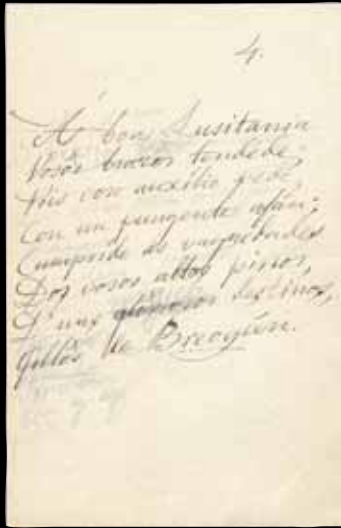 4.
Á boa Lusitania
Vosôs brazos tendede;
Pois voso auxílio pede
Con un pungente afán;
Cumpride as vaguedades
Dos vosos altos pinos,
D'uns gloriosos destinos,
de Breogán.